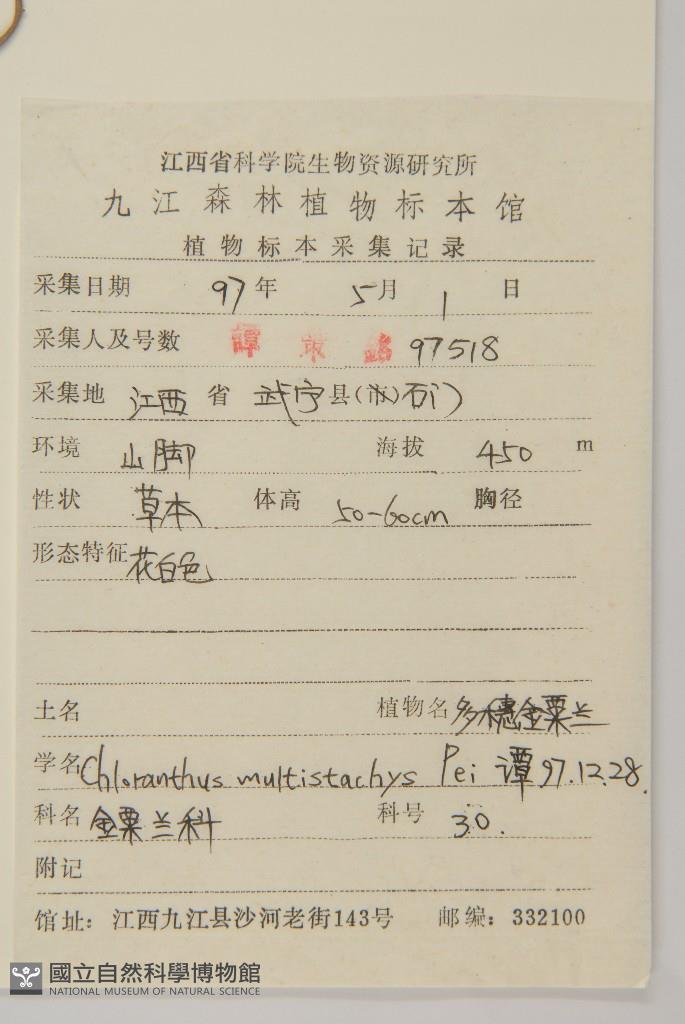 江西省科学院生物资源研究所
九江森林植物标本馆
植物标本采集记录
采集日期 97年 5月 1 日
采集人及号数 譚 策 銘 97518
采集地 江西 省 武宁县(市)石门
环境 山脚 海拔 450 m
性状 草本 体高 50-60cm 胸径
形态特征 花白色
土名 植物名 多穗金粟兰
学名 Chloranthus multistachys Pei 谭 97.12.28.
科名 金粟兰科 科号 30.
附记
馆址：江西九江县沙河老街143号 邮编：332100
國立自然科學博物館
NATIONAL MUSEUM OF NATURAL SCIENCE